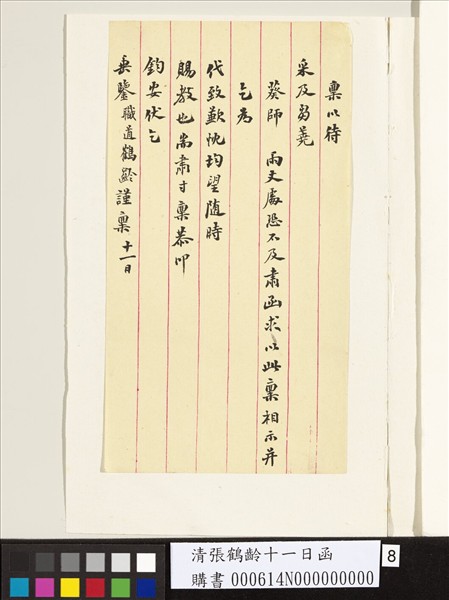 稟以待
采及芻蕘
葵師 兩丈處恐不及肅函求以此稟相示并
乞為
代致歉忱均望随時
賜教也耑肅寸稟恭叩
鈞安伏乞
垂鑒職道鶴齡謹稟 十一日
清張鶴齡十一日函
購書 000614N000000000
8